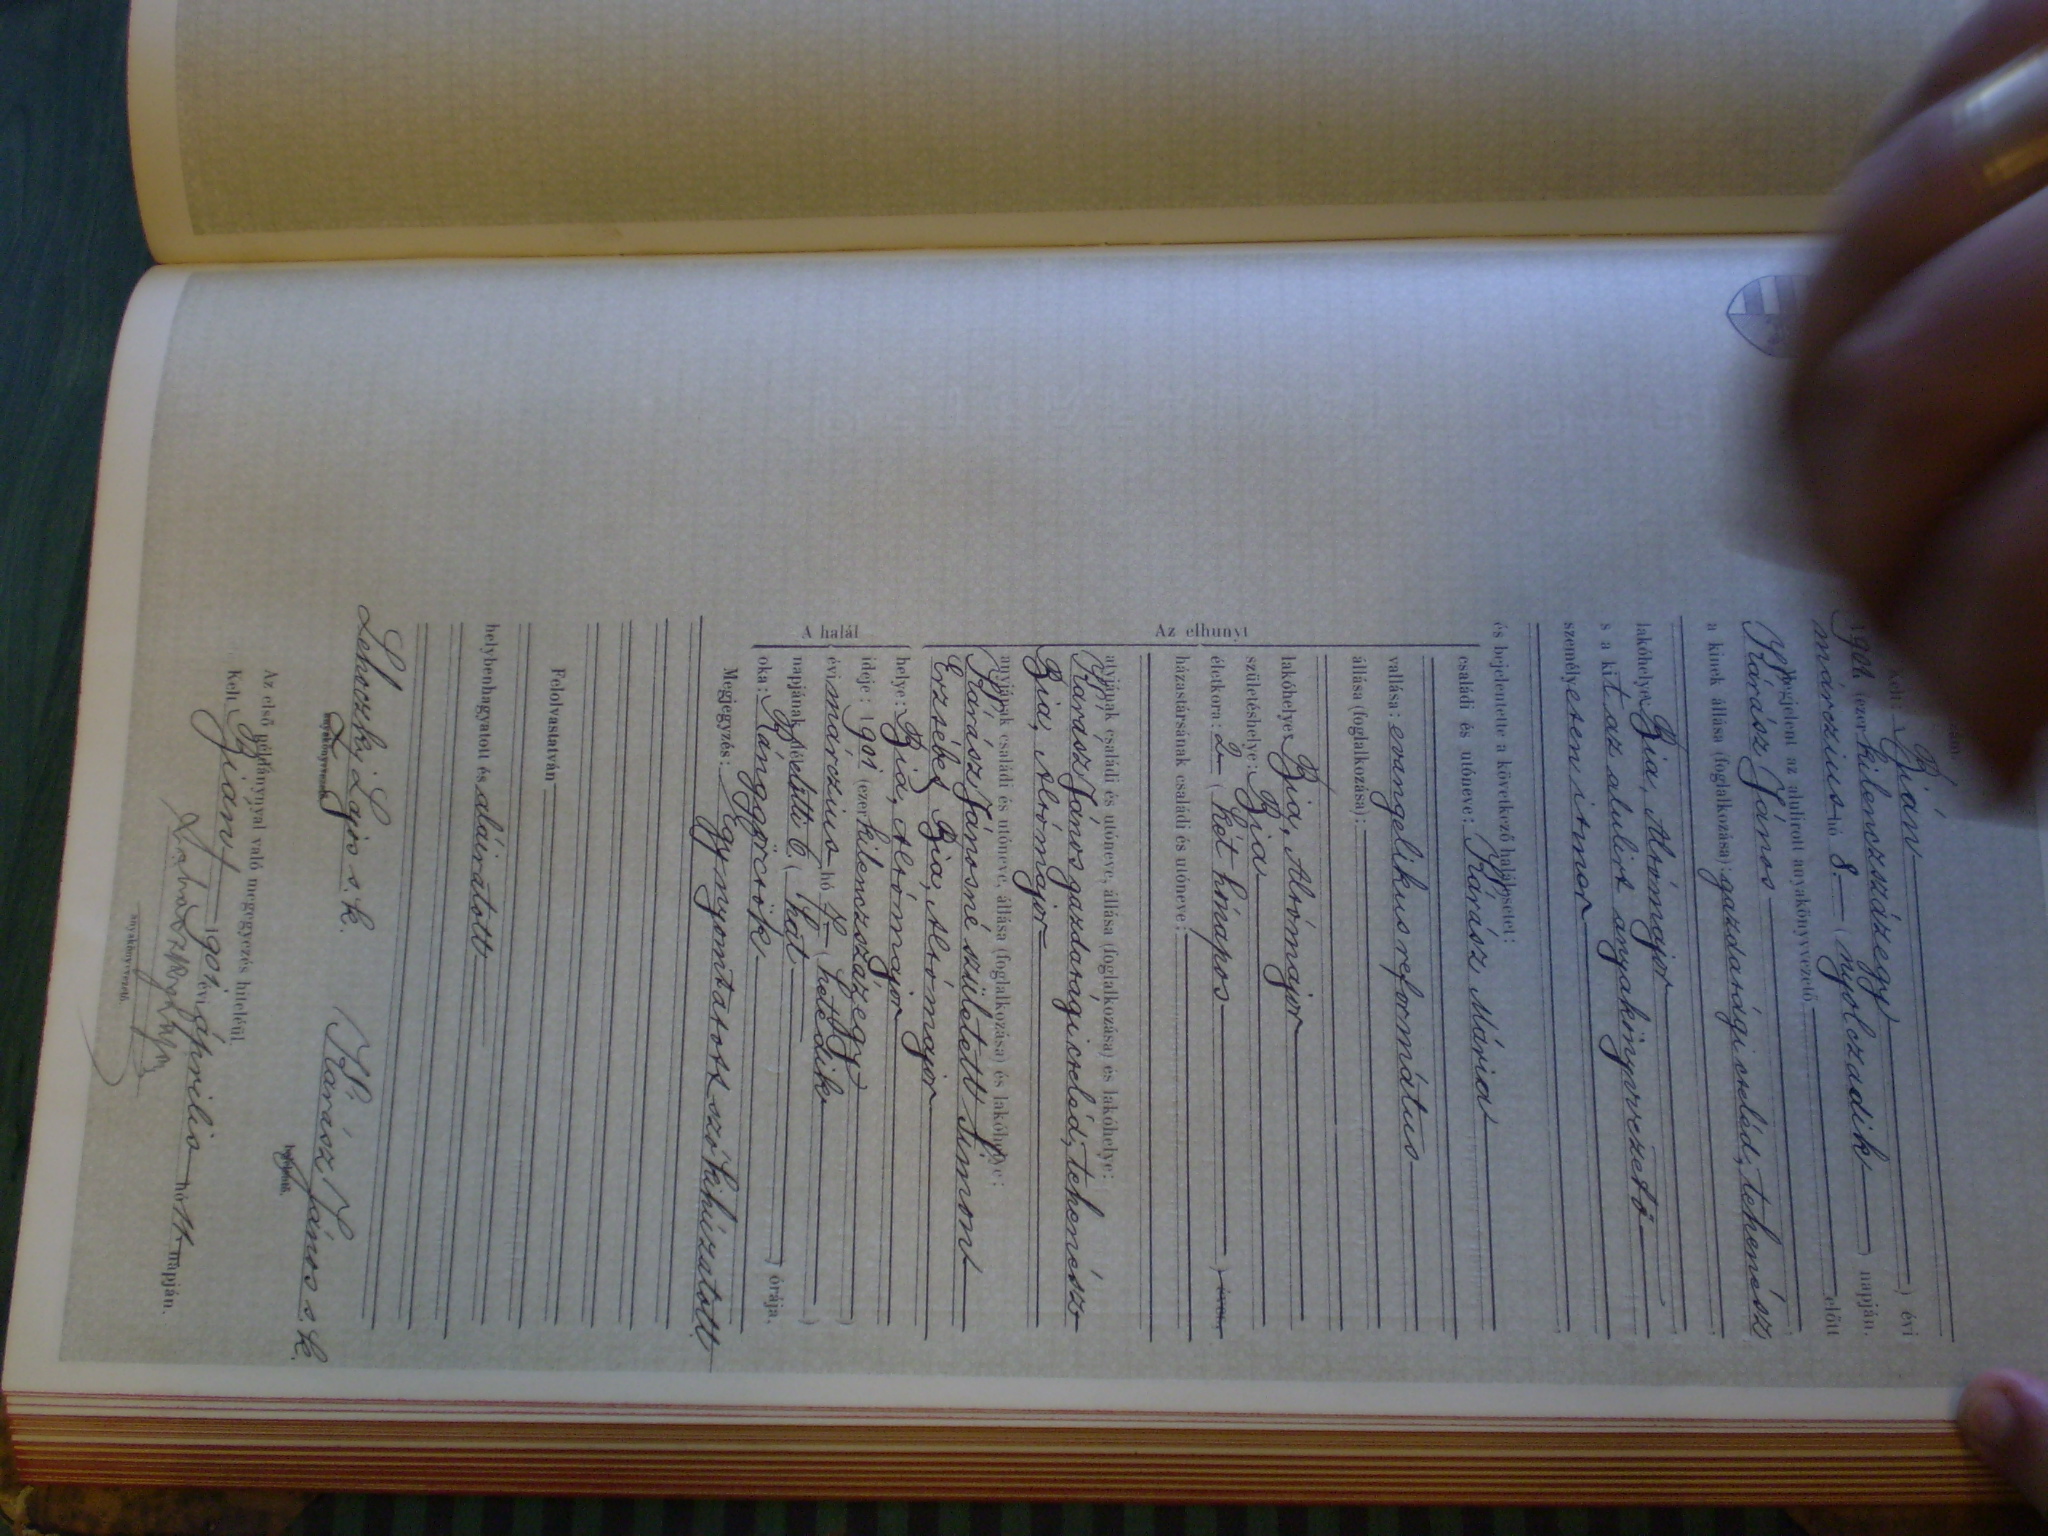 Kelt Bián
1901. (ezer kilenczszázegy) évi
márczius hó 8. (nyolczadik) napján.
Megjelent az alulirott anyakönyvvezető előtt
Kárász János
a kinek állása (foglalkozása): gazdasági cseléd, tehenész
lakóhelye: Bia, Alsómajor
s a kit az alulirt anyakönyvvezető
személyesen ismer
és bejelentette a következő halálesetet:
Az elhunyt
családi és utóneve: Kárász Mária
vallása: evangelikus református
állása (foglalkozása):
lakóhelye: Bia, Alsómajor
születéshelye: Bia
életkora: 2 (két hónapos) éves,
házastársának családi és utóneve:
atyjának családi és utóneve, állása (foglalkozása) és lakóhelye:
Kárász János gazdasági cseléd, tehenész
Bia, Alsómajor
anyjának családi és utóneve, állása (foglalkozása) és lakóhelye:
Kárász Jánosné született Simon
Erzsébet Bia, Alsómajor
A halál
helye: Bia, Alsómajor
ideje: 1901 (ezer kilenczszázegy)
évi márczius hó 7 (hetedik)
napjának délelőtti 6 (hat) órája.
oka: Ránggörcsök
Megjegyzés: Egy nyomtatott szó kihúzatott
Felolvastatván
helybenhagyatott és aláiratott
Lehoczki Lajos s. k. Kárász János s. k.
anyakönyvvezető. bejelentő.
Az első példánynyal való megegyezés hiteléül.
Kelt Bián 1901 évi április hó napján.
anyakönyvvezető.